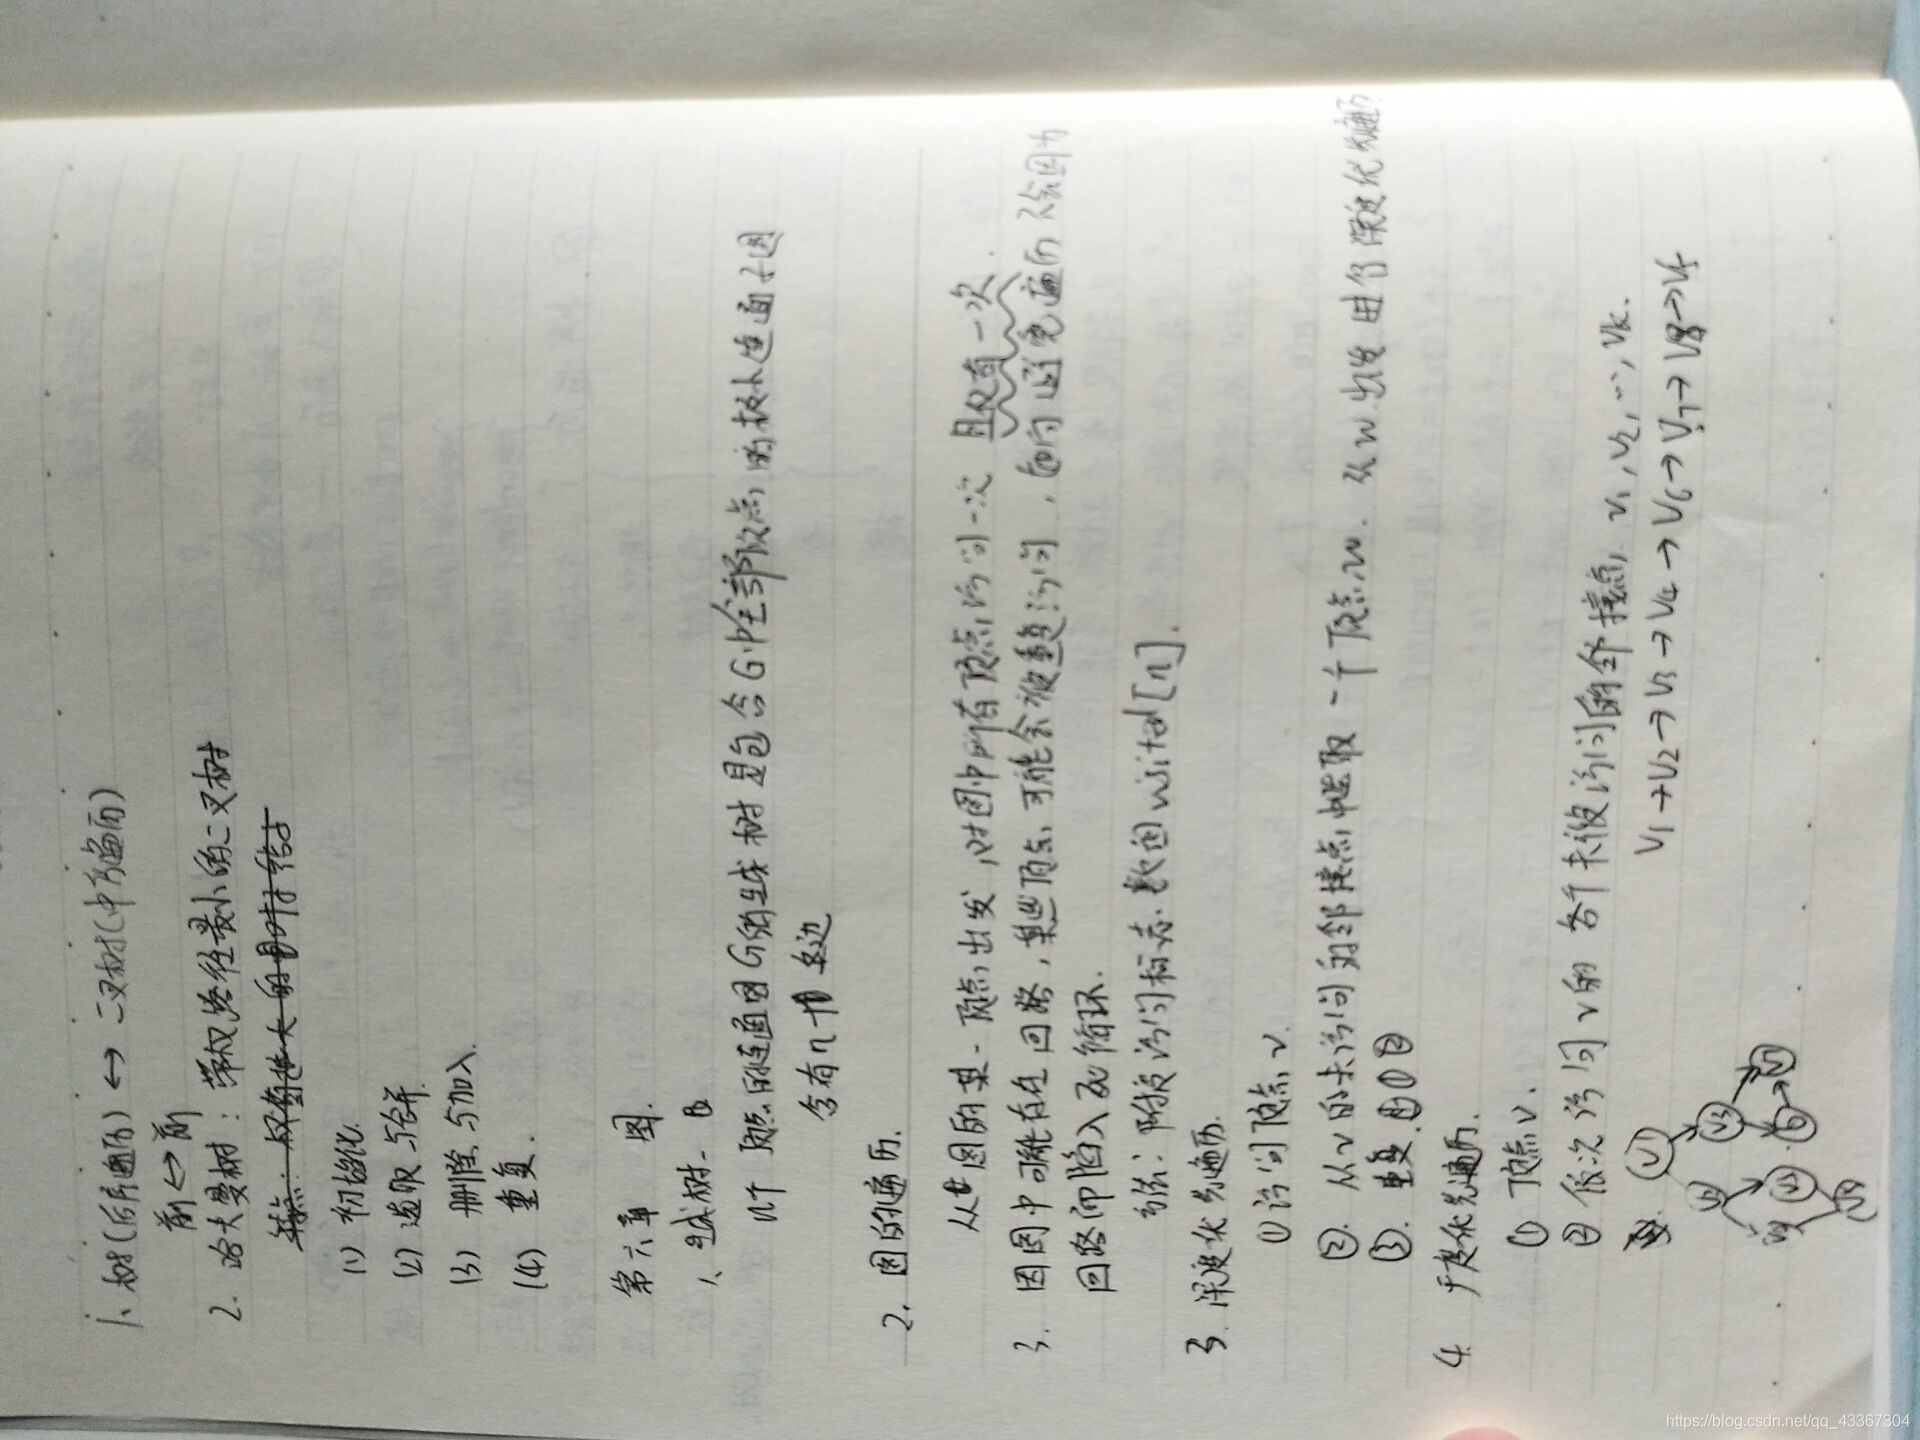 1、树(后序遍历) ↔ 二叉树(中序遍历)
前 ↔ 前
2. 哈夫曼树：带权路径最小的二叉树
特点：权值越大的叶子结
(1) 初始化
(2) 选取与合并
(3) 删除与加入
(4) 重复.
第六章 图.
1、生成树-
n个顶点的连通图G的生成树是包含G中全部顶点的极小连通子图
含有n-1条边
2. 图的遍历.
从图的某一顶点出发，对图中所有顶点访问一次 且仅有一次.
3. 因图中可能存在回路，某些顶点可能会被重复访问，如何避免遍历不会因为
回路而陷入死循环.
方法：附设访问标志数组visited[n].
3. 深度优先遍历.
① 访问顶点v
②. 从v的未访问的邻接点中选取一个顶点w. 从w出发进行深度优先遍历
③. 重复.①②
4. 广度优先遍历.
① 顶点v.
② 依次访问v的各个未被访问的邻接点, v1, v2, …, vk.
V1→V2→V3→V4→V6→V7→V8→V5
V1
V2
V3